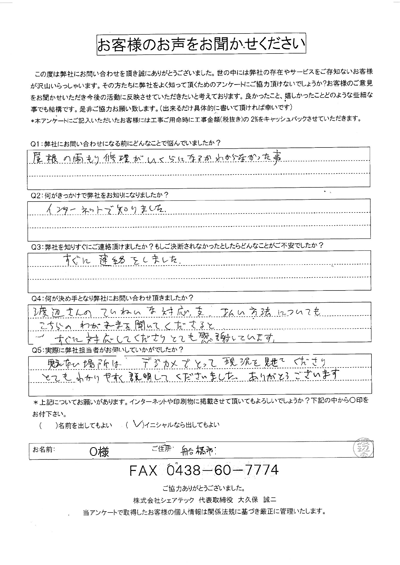 お客様のお声をお聞かせください
この度は弊社にお問い合わせを頂き誠にありがとうございました。世の中には弊社の存在やサービスをご存知ないお客様
が沢山いらっしゃいます。その方たちに弊社をよく知って頂くためのアンケートにご協力頂けないでしょうか?お客様のご意見
をお聞かせいただき今後の活動に反映させていただきたいと考えております。良かったこと、嬉しかったことどのような些細な
事でも結構です。是非ご協力お願い致します。(出来るだけ具体的に書いて頂ければ幸いです)
*本アンケートにご記入いただいたお客様には工事ご用命時に工事金額(税抜き)の2%をキャッシュバックさせていただきます。
Q1:弊社にお問い合わせになる前にどんなことで悩んでいましたか?
屋根の雨もり修理がいくらになるかわからなかった事
Q2:何がきっかけで弊社をお知りになりましたか?
インターネットで知りました
Q3:弊社を知りすぐにご連絡頂けましたか?もしご決断されなかったとしたらどんなことがご不安でしたか?
すぐに連絡をしました
Q4:何が決め手となり弊社にお問い合わせ頂きましたか?
渡辺さんのていねいな対応、支払い方法についても
こちらのわがままを聞いてくださると
すぐに対応してくださりとても感謝しています。
Q5:実際に弊社担当者がお伺いしていかがでしたか?
見えない場所はデジカメでとって現況を見せてくださり
とてもわかりやすく説明してくださいました。ありがとうございます
*上記についてお願いがあります。インターネットや印刷物に掲載させて頂いてもよろしいでしょうか?下記の中から○印を
お付下さい。
( )名前を出してもよい (✓)イニシャルなら出してもよい
お名前: O様 ご住所: 船橋市
FAX 0438-60-7774
ご協力ありがとうございました。
株式会社シェアテック 代表取締役 大久保 誠二
当アンケートで取得したお客様の個人情報は関係法規に基づき厳正に管理いたします。